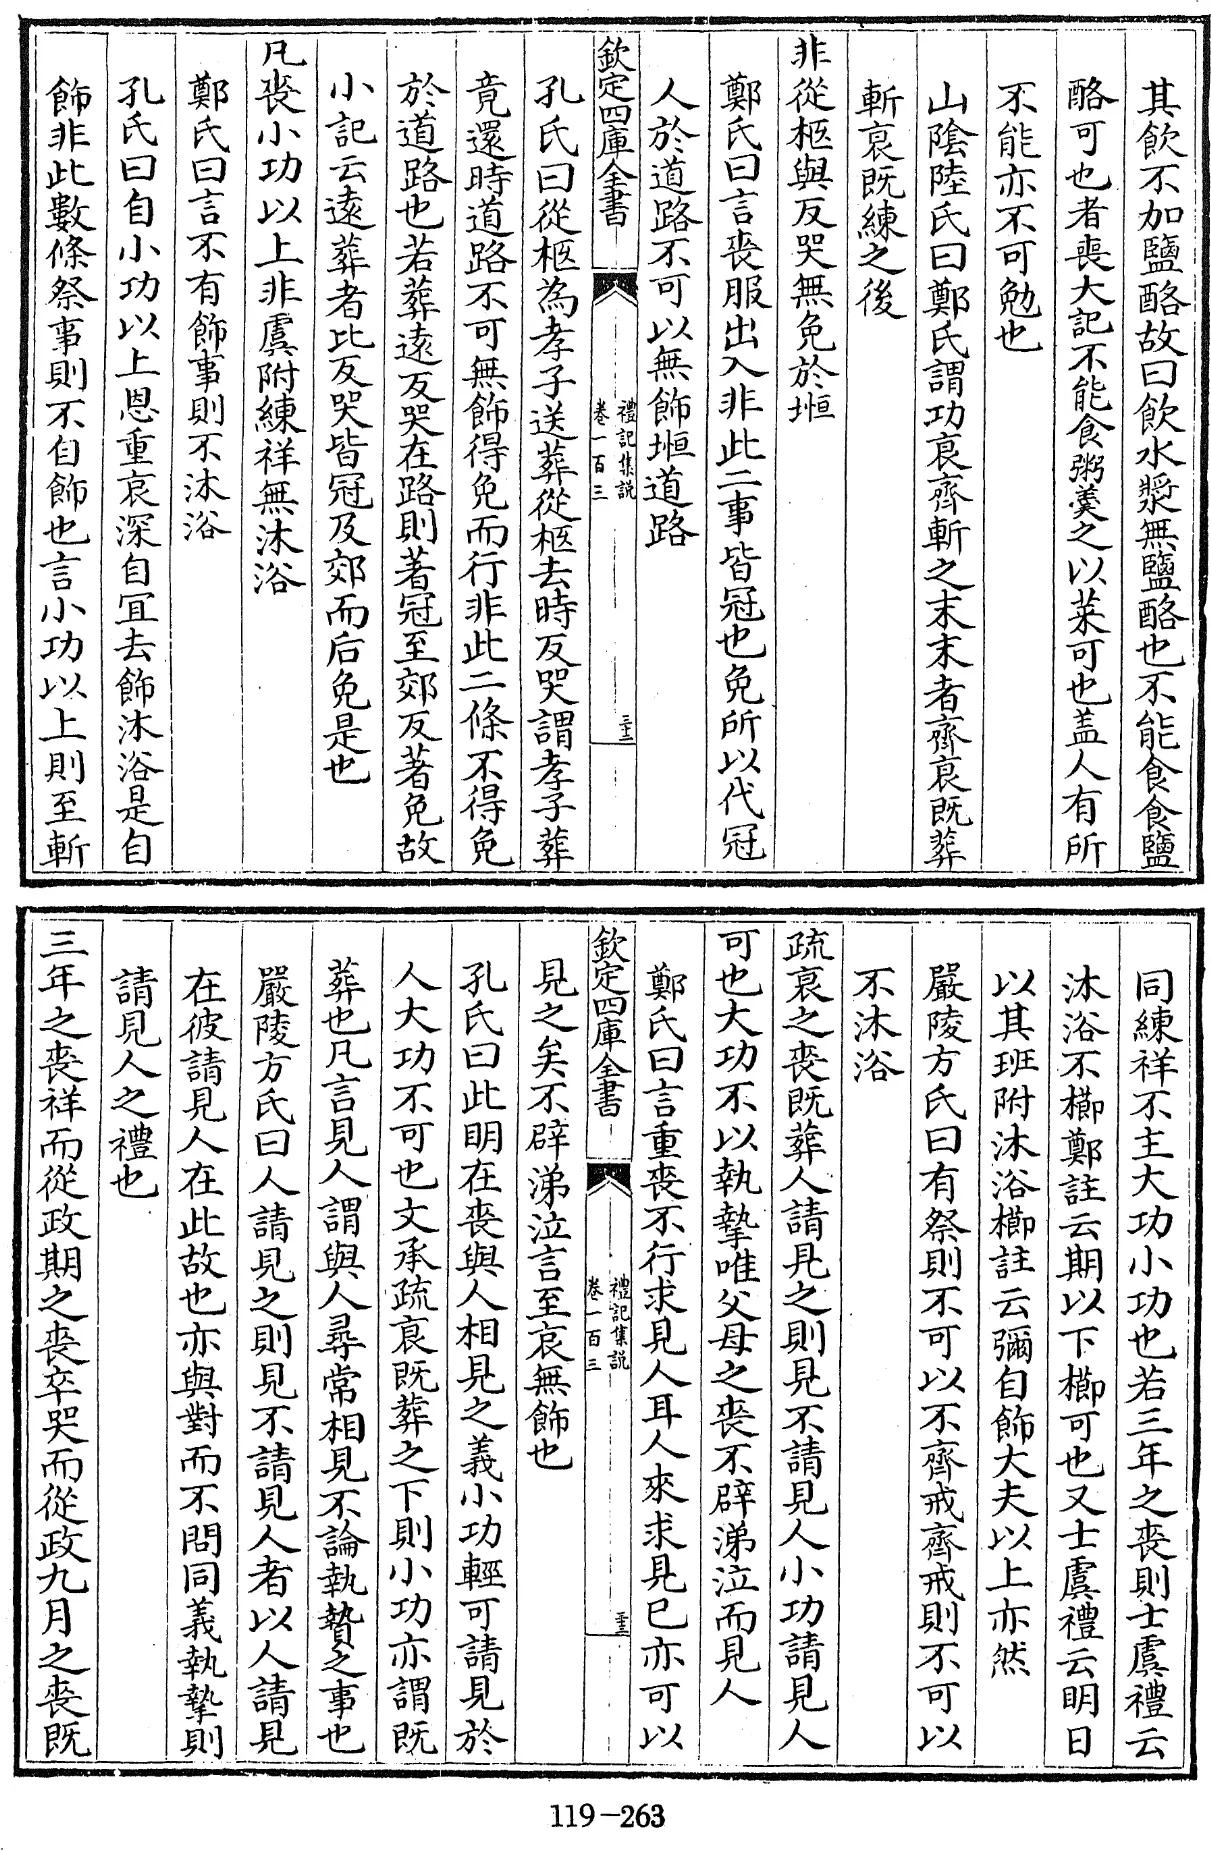 其飲不加鹽酪故曰飲水漿無鹽酪也不能食食鹽
酪可也者喪大記不能食粥羹之以菜可也盖人有所
不能亦不可勉也
山陰陸氏曰鄭氏謂功衰齊斬之末末者齊衰既葬
斬衰既練之後
非從柩與反哭無免於堩
鄭氏曰言喪服出入非此二事皆冠也免所以代冠
人於道路不可以無飾堩道路
欽定四庫全書
禮記集說
卷一百三
三十二
孔氏曰從柩為孝子送葬從柩去時反哭謂孝子葬
竟還時道路不可無飾得免而行非此二條不得免
於道路也若葬遠反哭在路則著冠至郊反著免故
小記云遠葬者比反哭皆冠及郊而后免是也
凡喪小功以上非虞附練祥無沐浴
鄭氏曰言不有飾事則不沐浴
孔氏曰自小功以上恩重哀深自宜去飾沐浴是自
飾非此數條祭事則不自飾也言小功以上則至斬
同練祥不主大功小功也若三年之喪則士虞禮云
沐浴不櫛鄭註云期以下櫛可也又士虞禮云明日
以其班附沐浴櫛註云彌自飾大夫以上亦然
嚴陵方氏曰有祭則不可以不齊戒齊戒則不可以
不沐浴
疏衰之喪既葬人請見之則見不請見人小功請見人
可也大功不以執摯唯父母之喪不辟涕泣而見人
鄭氏曰言重喪不行求見人耳人來求見已亦可以
欽定四庫全書
禮記集說
卷一百三
三十三
見之矣不辟涕泣言至哀無飾也
孔氏曰此明在喪與人相見之義小功輕可請見於
人大功不可也文承疏衰既葬之下則小功亦謂既
葬也凡言見人謂與人尋常相見不論執贄之事也
嚴陵方氏曰人請見之則見不請見人者以人請見
在彼請見人在此故也亦與對而不問同義執摯則
請見人之禮也
三年之喪祥而從政期之喪卒哭而從政九月之喪既
119-263